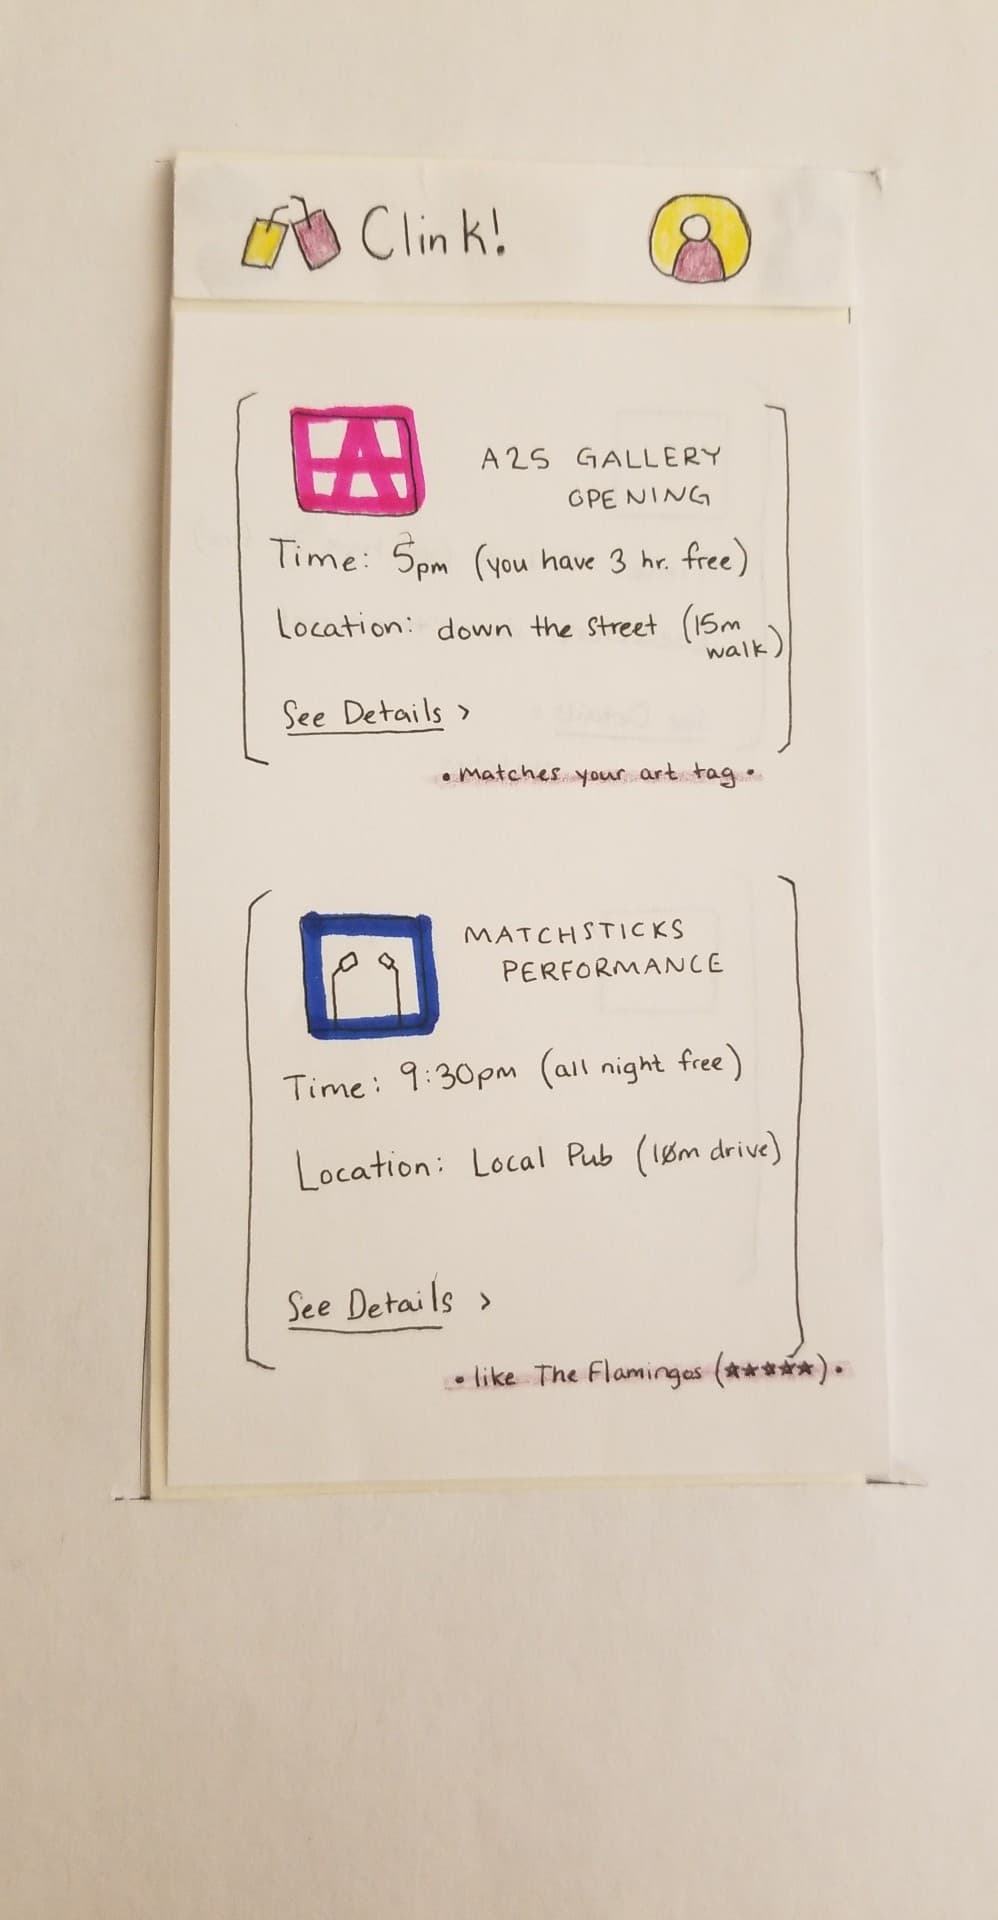 Clink!
A2S GALLERY
OPENING
Time: 5pm (you have 3 hr. free)
Location: down the street (15m
walk)
See Details >
• Matches your art tag •
MATCHSTICKS
PERFORMANCE
Time: 9:30pm (all night free)
Location: Local Pub (10m drive)
See Details >
• like The Flamingos (★★★★★) •